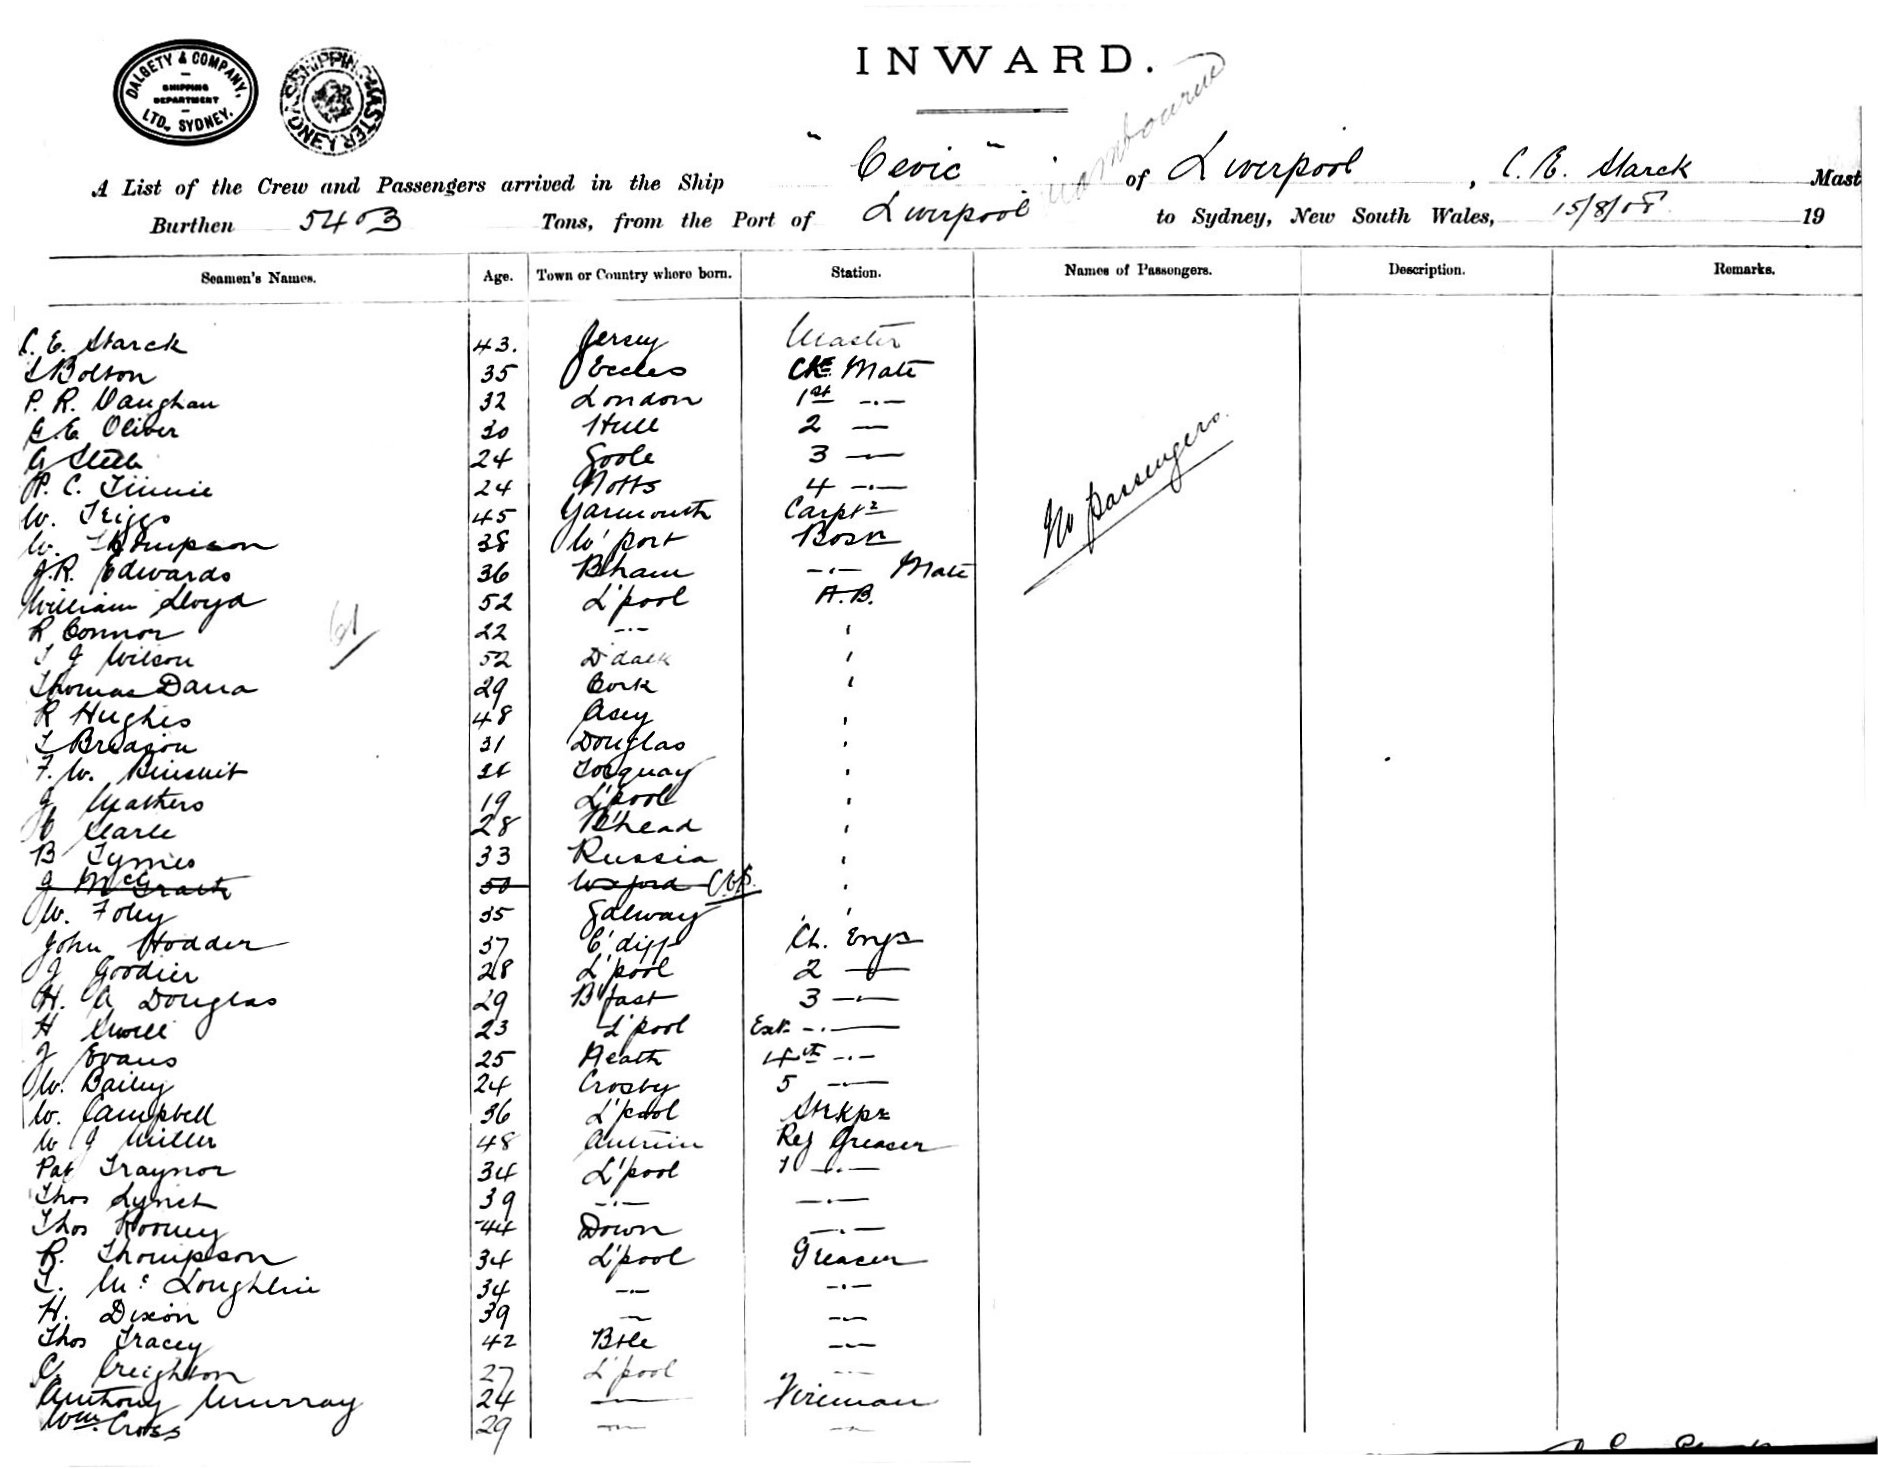 INWARD.
DALGETY & COMPANY, LTD., SYDNEY.
SHIPPING DEPARTMENT
SHIPPING MASTER SYDNEY
A List of the Crew and Passengers arrived in the Ship "Cevic" of Liverpool, C. E. Starck Mast
Burthen 5403 Tons, from the Port of Liverpool to Sydney, New South Wales, 15/8/08 19
Seamen's Names. Age. Town or Country where born. Station. Names of Passengers. Description. Remarks.
C. E. Starck 43. Jersey Master
Bolton 35 Eccles Mate
P. R. Vaughan 32 London 1st -.-
E. E. Oliver 30 Hull 2 —
24 Goole 3 —
P. C. 24 Notts 4 -.-
No passengers.
W. Triggs 45 Yarmouth Carptr
W. Thompson 38 W'port Bosn
J. R. Edwards 36 B'ham -.- Mate
William Lloyd 52 L'pool A.B.
R Connor 22 -.- '
61
J Wilson 52 D'dalk '
Thomas Dana 29 Cork '
R Hughes 48 '
31 Douglas '
F. W. Torquay '
J Mathers 19 L'pool '
28 B'head '
B 33 Russia '
J McGrath 50 Wexford '
W. Foley 35 Galway '
John Hodder 37 C'diff Ch. Engr
J Goodier 28 L'pool 2 —
H. A Douglas 29 B'fast 3 -.-
H 23 L'pool Ext -.-
J Evans 25 Neath 4th -.-
W. Bailey 24 Crosby 5 -.-
W. Campbell 36 L'pool Strkpr
W J Miller 48 Antrim Greaser
Pat Traynor 34 L'pool -.-
Thos Lynch 39 -.- -.-
Thos Rooney 44 Down -.-
R. Thompson 34 L'pool Greaser
Mc Loughlin 34 -.- -.-
H. Dixon 39 — -.-
Thos Tracey 42 Btle -.-
Creighton 27 L'pool -.-
Anthony Murray 24 — Fireman
Wm. Cross 29 -.- -.-